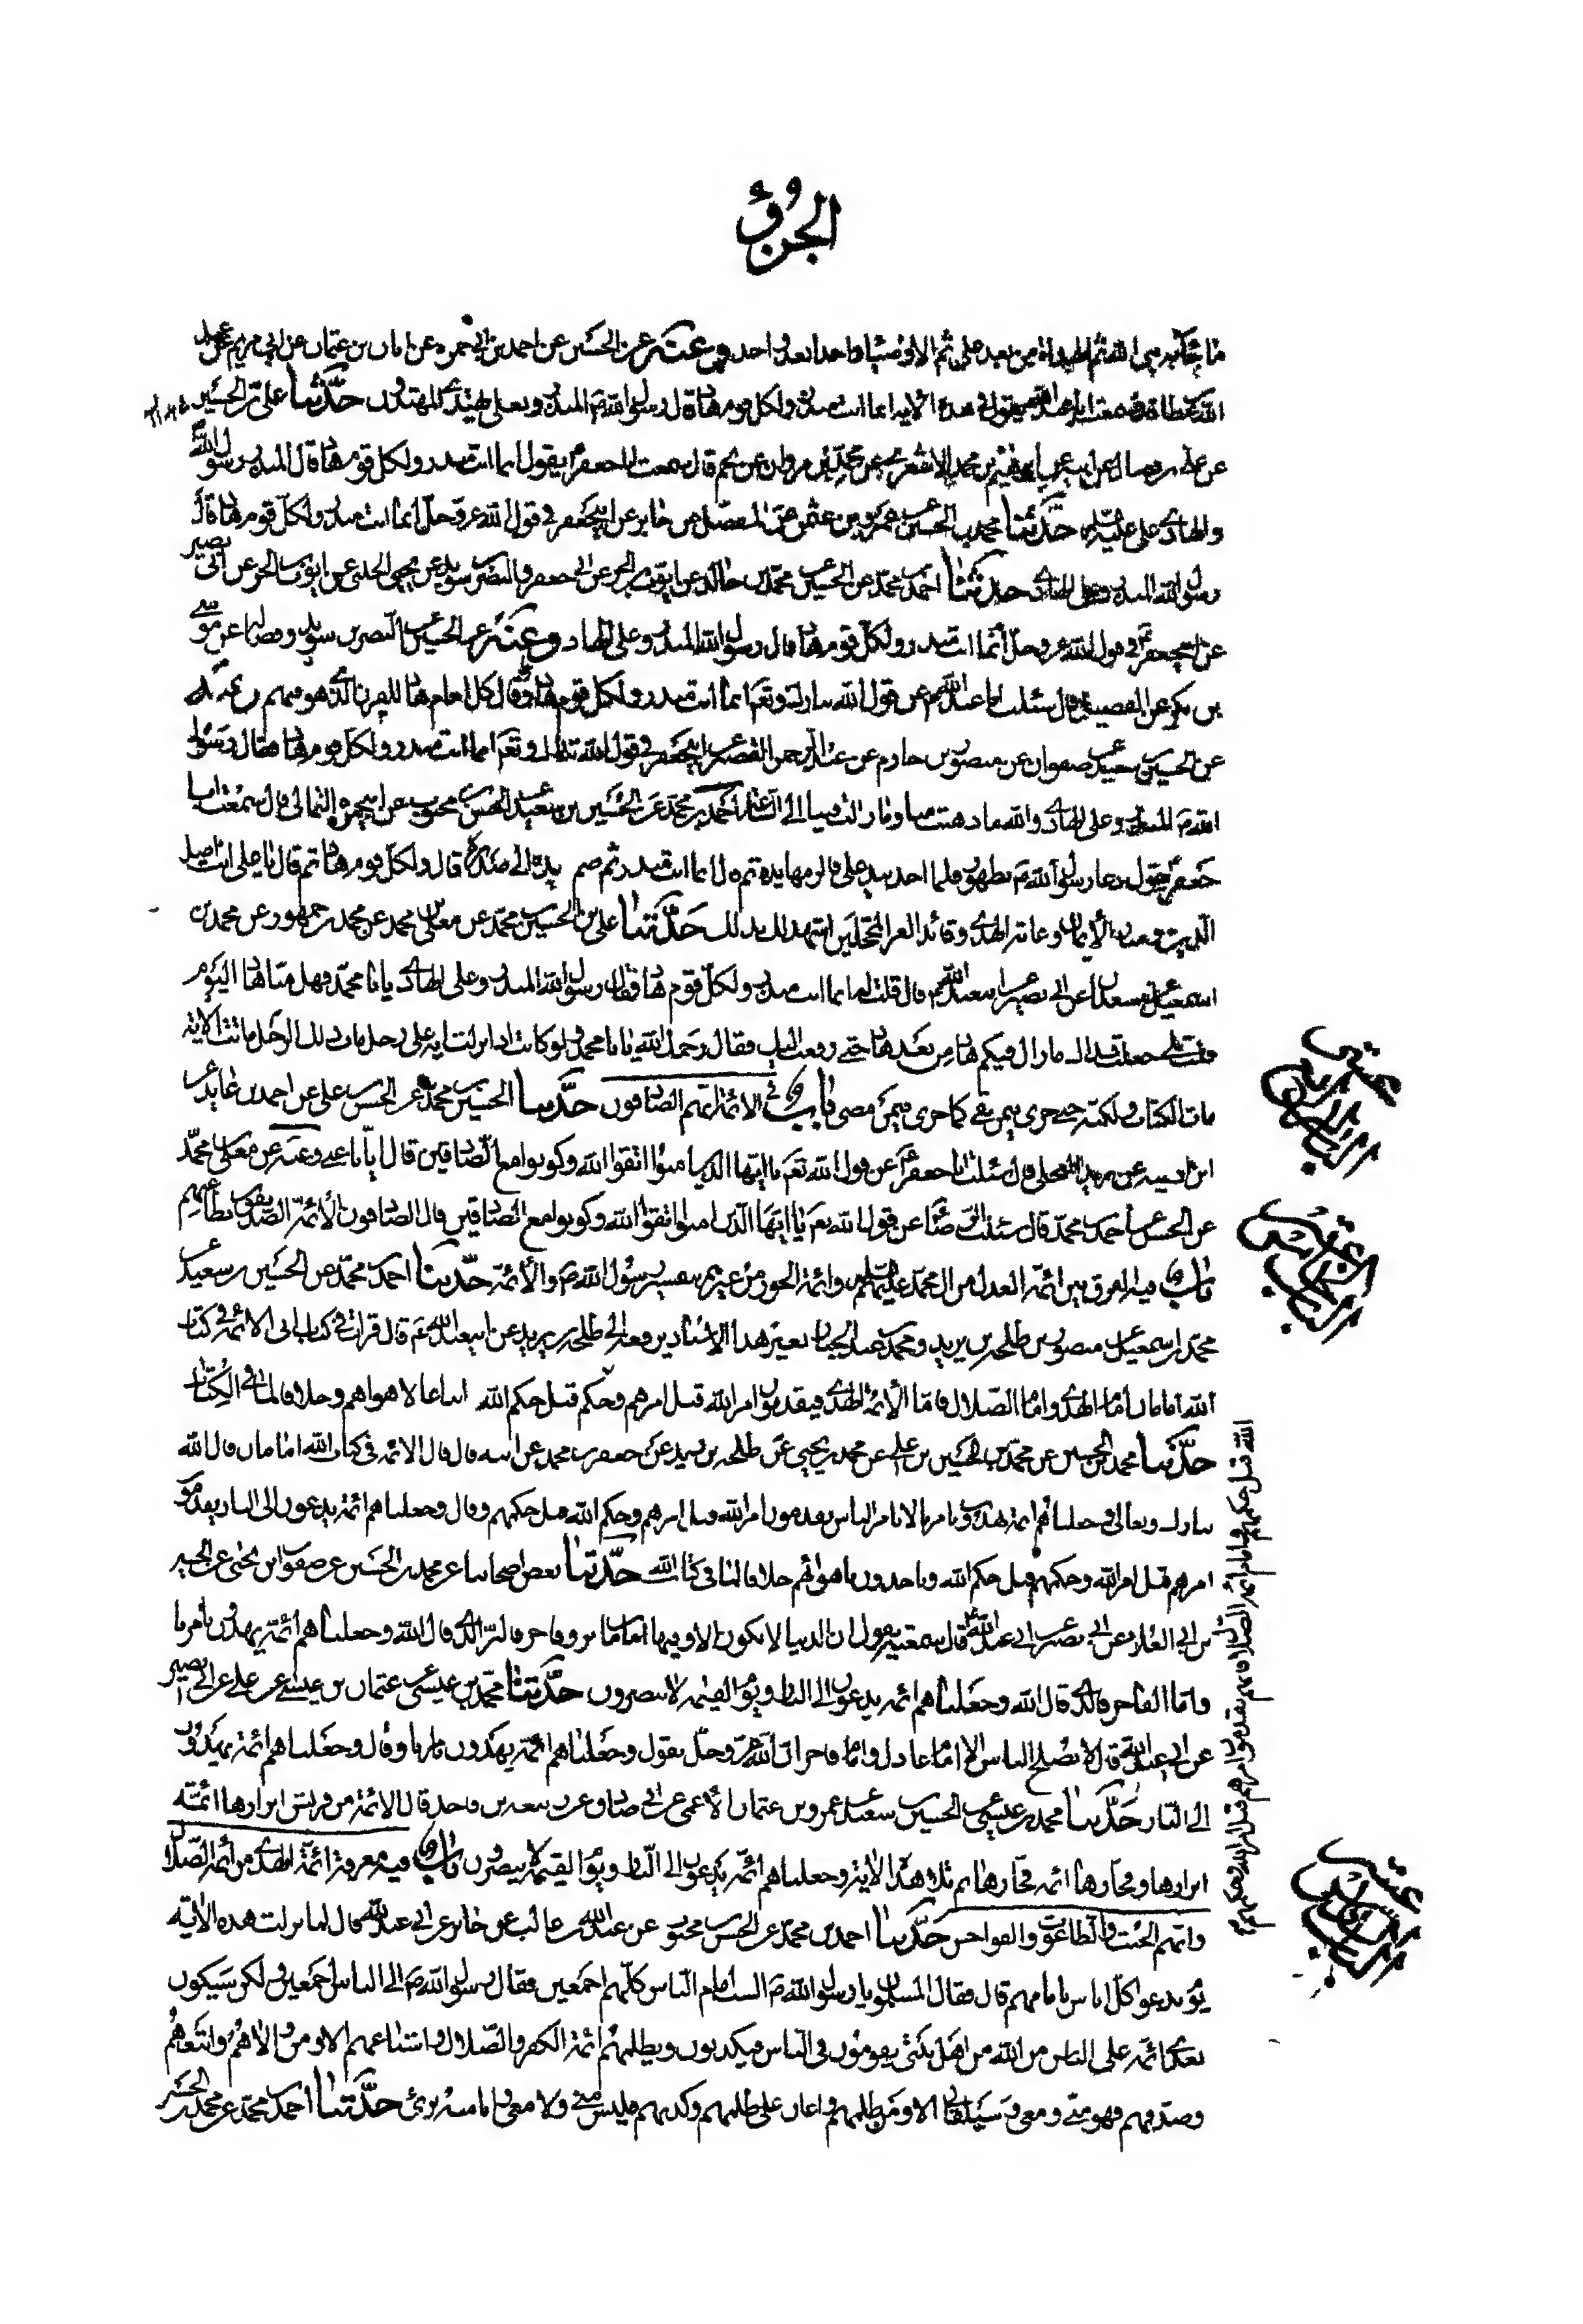 الجزؤ
ما جاء به نبى الله ثم الهداة من بعد على ثم الاوصياء واحدا بعد واحد وعنه عن الحسين عن احمد بن ابى حمزه عن ابان بن عثمان عن ابى مريم عن عبد
الله بن عطا قال سمعت ابا جعفر يقول فى هذه الاية انما انت منذر ولكل قوم هاد قال رسول الله ص المنذر وبعلى يهتدى المهتدون حدثنا على بن الحسين
عن على بن فضال عن ابيه عن ابراهيم بن محمد الاشعرى عن محمد بن مروان عن نجم قال سمعت ابا جعفر يقول انما انت منذر ولكل قوم هاد قال المنذر رسول الله
والهادى على عليه السلم حدثنا محمد بن الحسين عن عمرو بن عثمن عن المفضل عن جابر عن ابيجعفر فى قول الله عز وجل انما انت منذر ولكل قوم هاد قال
رسول الله المنذر وعلى الهادى حدثنا احمد بن محمد عن الحسين عن محمد بن خالد عن ايوب بن الحر عن ابى جعفر والنضر بن سويد عن يحيى الحلبى عن ايوب بن الحر عن ابى بصير
عن ابيجعفر فى قول الله عز وجل انما انت منذر ولكل قوم هاد قال رسول الله المنذر وعلى الهاد وعنه عن الحسين عن النضر بن سويد وفضاله عن موسى
بن بكر عن الفضيل قال سئلت ابا عبد الله عن قول الله تبارك وتعم انما انت منذر ولكل قوم هاد قال كل امام هاد للقرن الذى هو فيهم
عن الحسين بن سعيد عن صفوان عن منصور بن حازم عن عبد الرحمن القصير عن ابيجعفر فى قول الله تبارك وتعم انما انت منذر ولكل قوم هاد فقال رسول
الله ص المنذر وعلى الهادى والله ما ذهبت منا وما زالت فينا الى الساعة احمد بن محمد عن الحسين بن سعيد عن الحسن بن محبوب عن ابيحمزه الثمالى قال سمعت ابا
جعفر يقول دعا رسول الله ص بطهور فلما اخذ بيد على فالزمها يده ثم قال انما انت منذر ثم ضم يده الى صدره قال ولكل قوم هاد ثم قال يا على انت اصل
الدين ومنار الايمان وغاية الهدى وقائد الغر المحجلين اشهد لك بذلك حدثنا على بن الحسين بن محمد عن معلى بن محمد عن محمد بن جمهور عن محمد بن
اسمعيل عن سعدان عن ابى بصير عن ابيعبد الله قال قلت له انما انت منذر ولكل قوم هاد فقال رسول الله المنذر وعلى الهادى يابا محمد فهل منا هاد اليوم
قلت بلى جعلت فداك ما زال فيكم هاد من بعد هاد حتى رفعت اليك فقال رحمك الله يابا محمد ولو كانت اذا نزلت اية على رجل مات ذلك الرجل ماتت الاية
مات الكتاب ولكنه حى جرى فيمن بقى كما جرى فيمن مضى باب فى الائمة انهم الصادقون حدثنا الحسين بن محمد عن الحسن بن على عن احمد بن عايذ عن
ابن اذينه عن بريد العجلى قال سئلت ابا جعفر عن قول الله تعم يا ايها الذين امنوا اتقوا الله وكونوا مع الصادقين قال ايانا عنى وعنه عن معلى بن محمد
عن الحسن عن احمد بن محمد قال سئلت الرضا عن قول الله تعم يا ايها الذين امنوا اتقوا الله وكونوا مع الصادقين قال الصادقون الائمة الصديقون بطاعتهم
باب فيه الفرق بين ائمة العدل من ال محمد عليهم السلم وائمة الجور من غيرهم بتفسير رسول الله ص والائمة حدثنا احمد بن محمد عن الحسين بن سعيد عن
محمد بن اسمعيل عن منصور عن طلحة بن يزيد ومحمد بن عبد الجبار بغير هذا الاسناد يرفعه الى طلحة بن يزيد عن ابيعبد الله عم قال قرات فى كتاب ابى الائمة فى كتاب
الله امامان امام الهدى وامام الضلال فاما الائمة الهدى فيقدمون امر الله قبل امرهم وحكم قبل حكم الله اتباعا لاهوائهم وخلافا لما فى الكتاب
حدثنا محمد بن الحسين عن محمد بن الحسين بن على عن محمد بن يحيى عن طلحة بن زيد عن جعفر بن محمد عن ابيه قال قال الائمة فى كتاب الله امامان قال الله
تبارك وتعالى وجعلناهم ائمة يهدون بامرنا لا بامر الناس يقدمون امر الله قبل امرهم وحكم الله قبل حكمهم وقال وجعلناهم ائمة يدعون الى النار يقدمون
امرهم قبل امر الله وحكمهم قبل حكم الله وياخذون باهوائهم خلافا لما فى كتاب الله حدثنا بعض اصحابنا عن محمد بن الحسين عن صفوان بن يحيى عن الحسين
بن ابى العلاء عن ابى بصير عن ابى عبد الله قال سمعته يقول ان الدنيا لا تكون الا وفيها امامان بر وفاجر فالبر الذى قال الله وجعلناهم ائمة يهدون بامرنا
واما الفاجر فالذى قال الله وجعلناهم ائمة يدعون الى النار ويوم القيمه لا ينصرون حدثنا محمد بن عيسى عن عثمان بن عيسى عن على عن ابى بصير
عن ابى عبد الله قال لا يصلح الناس الا امام عادل وامام فاجر ان الله عز وجل يقول وجعلناهم ائمة يهدون بامرنا وقال وجعلناهم ائمة يدعون
الى النار حدثنا محمد بن عيسى عن الحسين بن سعيد عن عمرو بن عثمان الاعمى عن ابى صادق عن ربيعه بن ناجد قال الائمة من قريش ابرارها ائمة
ابرارها وفجارها ائمه فجارها ثم تلا هذه الاية وجعلناهم ائمة يدعون الى النار ويوم القيمة لا ينصرون باب فيه معرفة ائمة الهدى من ائمة الضلال
وانهم الجبت والطاغوت والفواحش حدثنا احمد بن محمد عن الحسن بن محبوب عن عبد الله بن غالب عن جابر عن ابى عبد الله قال لما نزلت هذه الايه
يوم ندعو كل اناس بامامهم قال فقال المسلمون يا رسول الله ص الست امام الناس كلهم اجمعين فقال رسول الله ص الى الناس اجمعين ولكن سيكون
بعدى ائمه على الناس من الله من اهل بيتى يقومون فى الناس فيكذبون ويظلمهم ائمة الكفر والضلال واشياعهم الا ومن والاهم واتبعهم
وصدقهم فهو منى ومعى وسيلقانى الا ومن ظلمهم واعان على ظلمهم وكذبهم فليس منى ولا معى وانا منه برىء حدثنا احمد بن محمد عن محمد بن الحسين